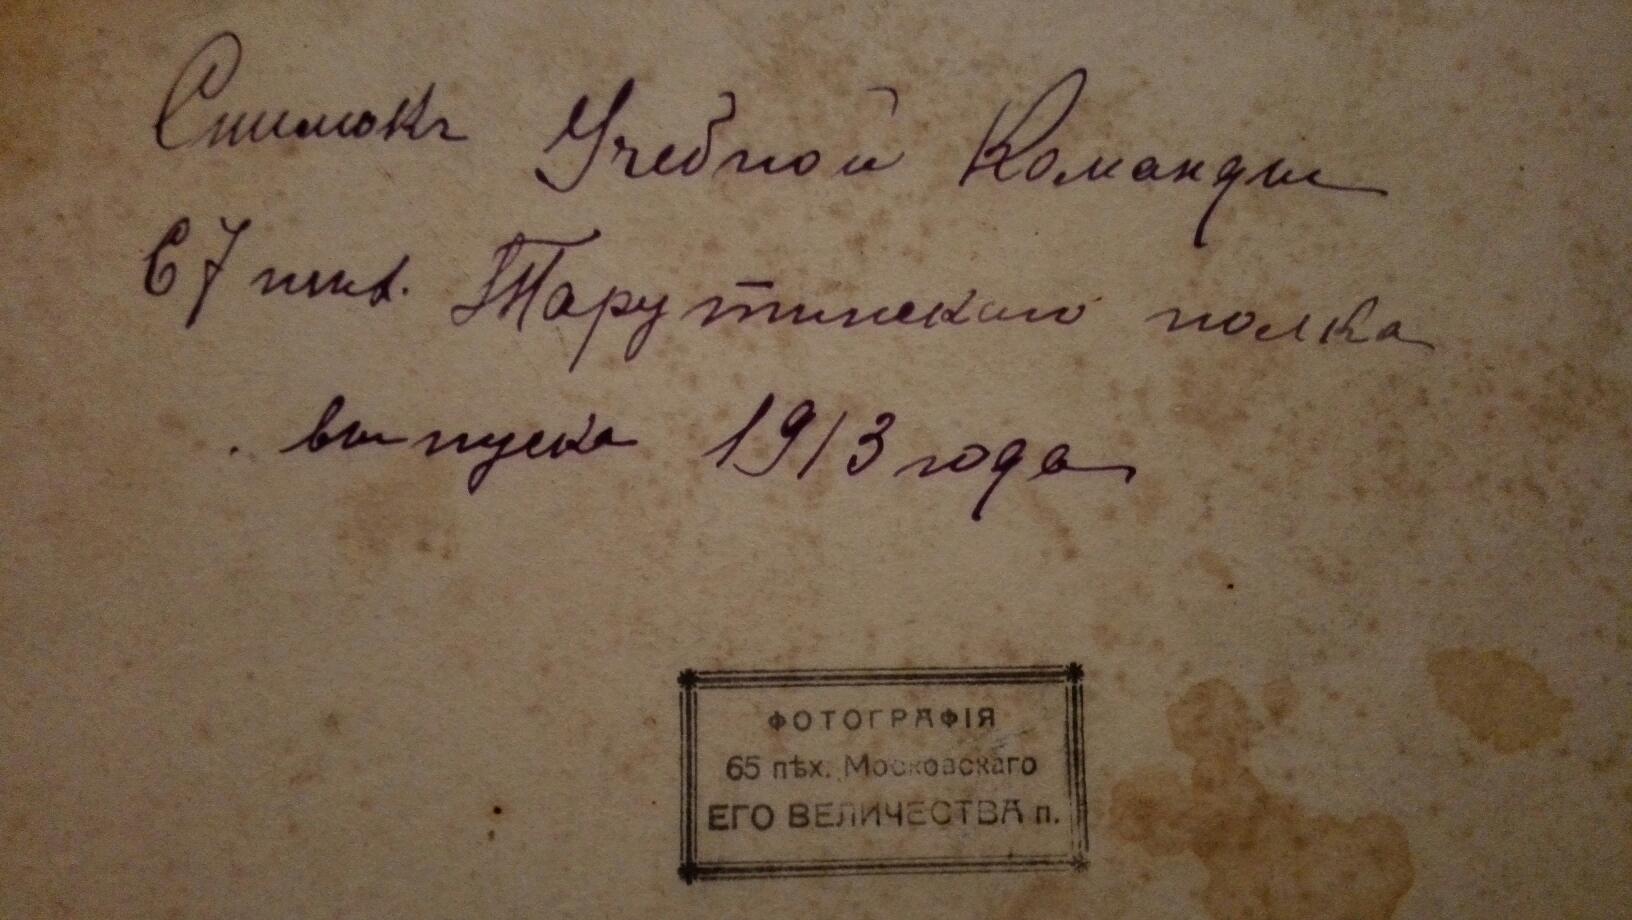 Снимокъ Учебной Команды
67 пѣх. Тарутинскаго полка
выпуска 1913 года
ФОТОГРАФІЯ
65 пѣх. Московскаго
ЕГО ВЕЛИЧЕСТВА п.